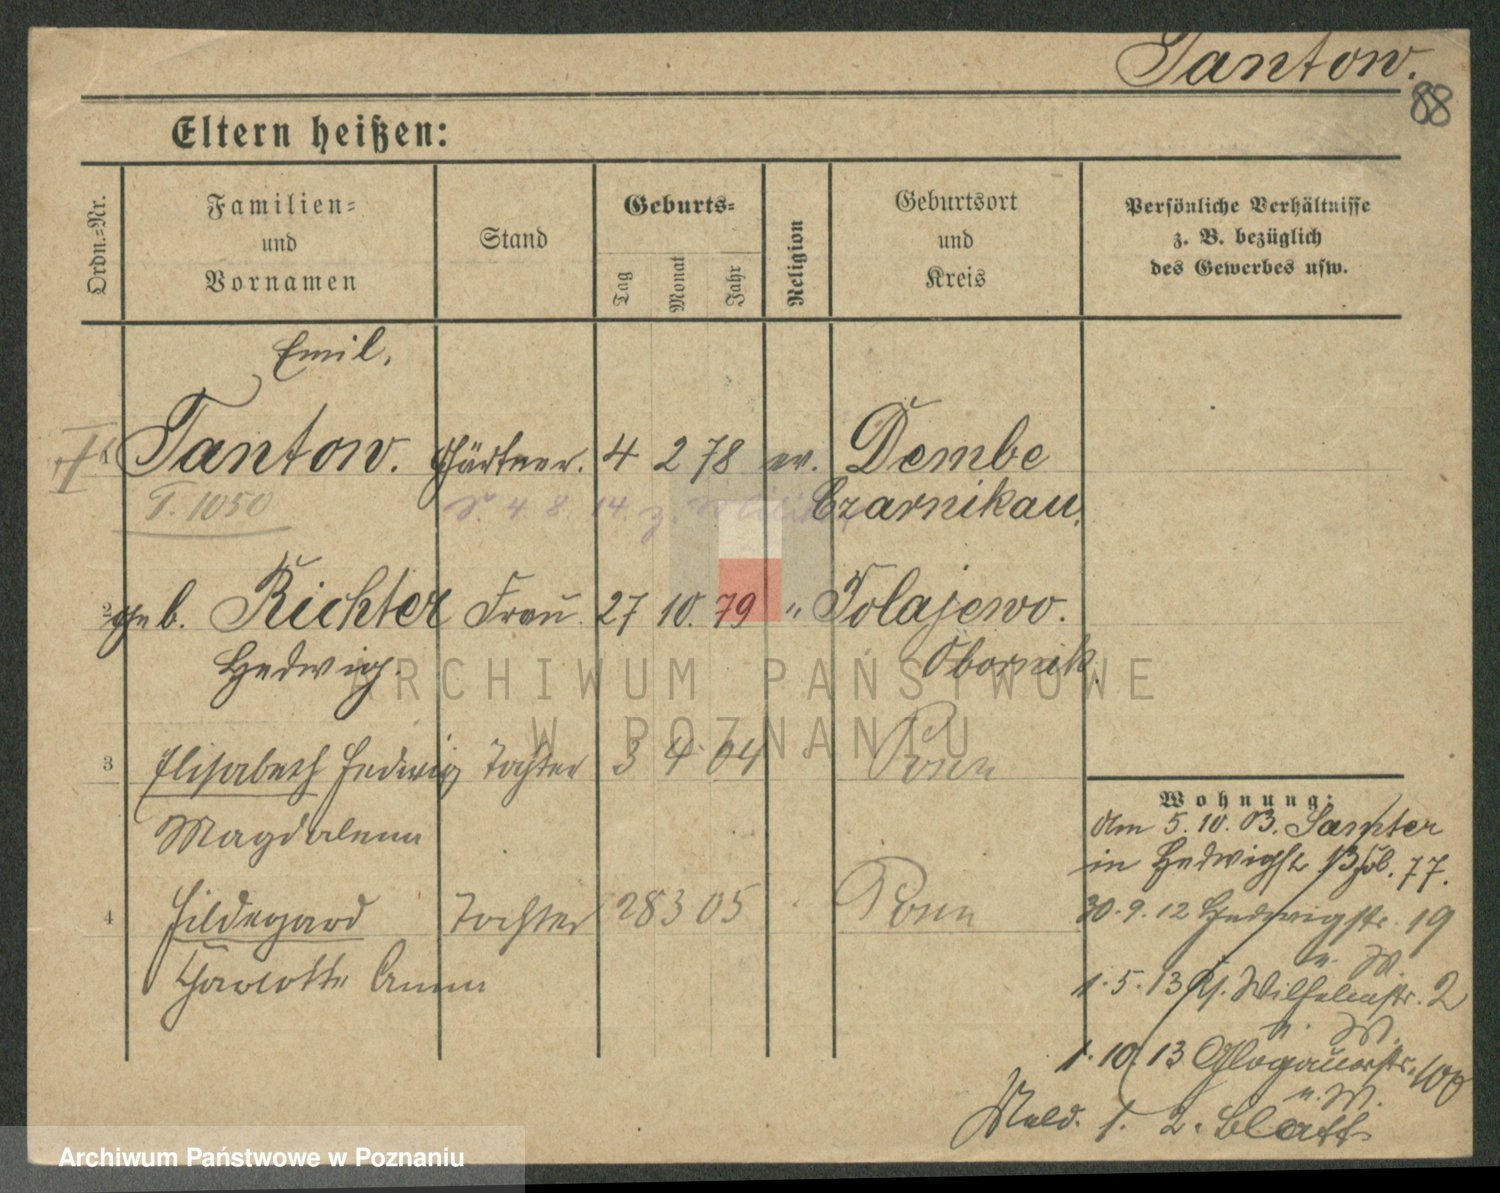 Tantow.
88
Eltern heißen:
Ordn.-Nr.
Familien-
und
Vornamen
Stand
Geburts-
Tag
Monat
Jahr
Religion
Geburtsort
und
Kreis
Persönliche Verhältnisse
z. B. bezüglich
des Gewerbes usw.
Emil,
1 Tantow. Gärtner. 4 2 78 ev. Dembe
T. 1050 4. 8. 14. z. Czarnikau.
2 geb. Richter Frau 27 10. 79 " Polajewo.
Hedwig. Obornik.
3 Elisabeth Hedwig Tochter 3 4 04 Posen
Magdalena
4 Hildegard Tochter 28 3 05 Posen
Charlotte Anna
Wohnung:
Am 5. 10. 03. Samter
in Hedwigstr. 13 77.
30. 9. 12 Hedwigstr. 19
u. W.
1. 5. 13 Wilhelmstr. 2
u. W.
1. 10. 13 Glogauerstr. 100
u. W.
Meld. 1. 2. Blatt
ARCHIWUM PAŃSTWOWE
W POZNANIU
Archiwum Państwowe w Poznaniu